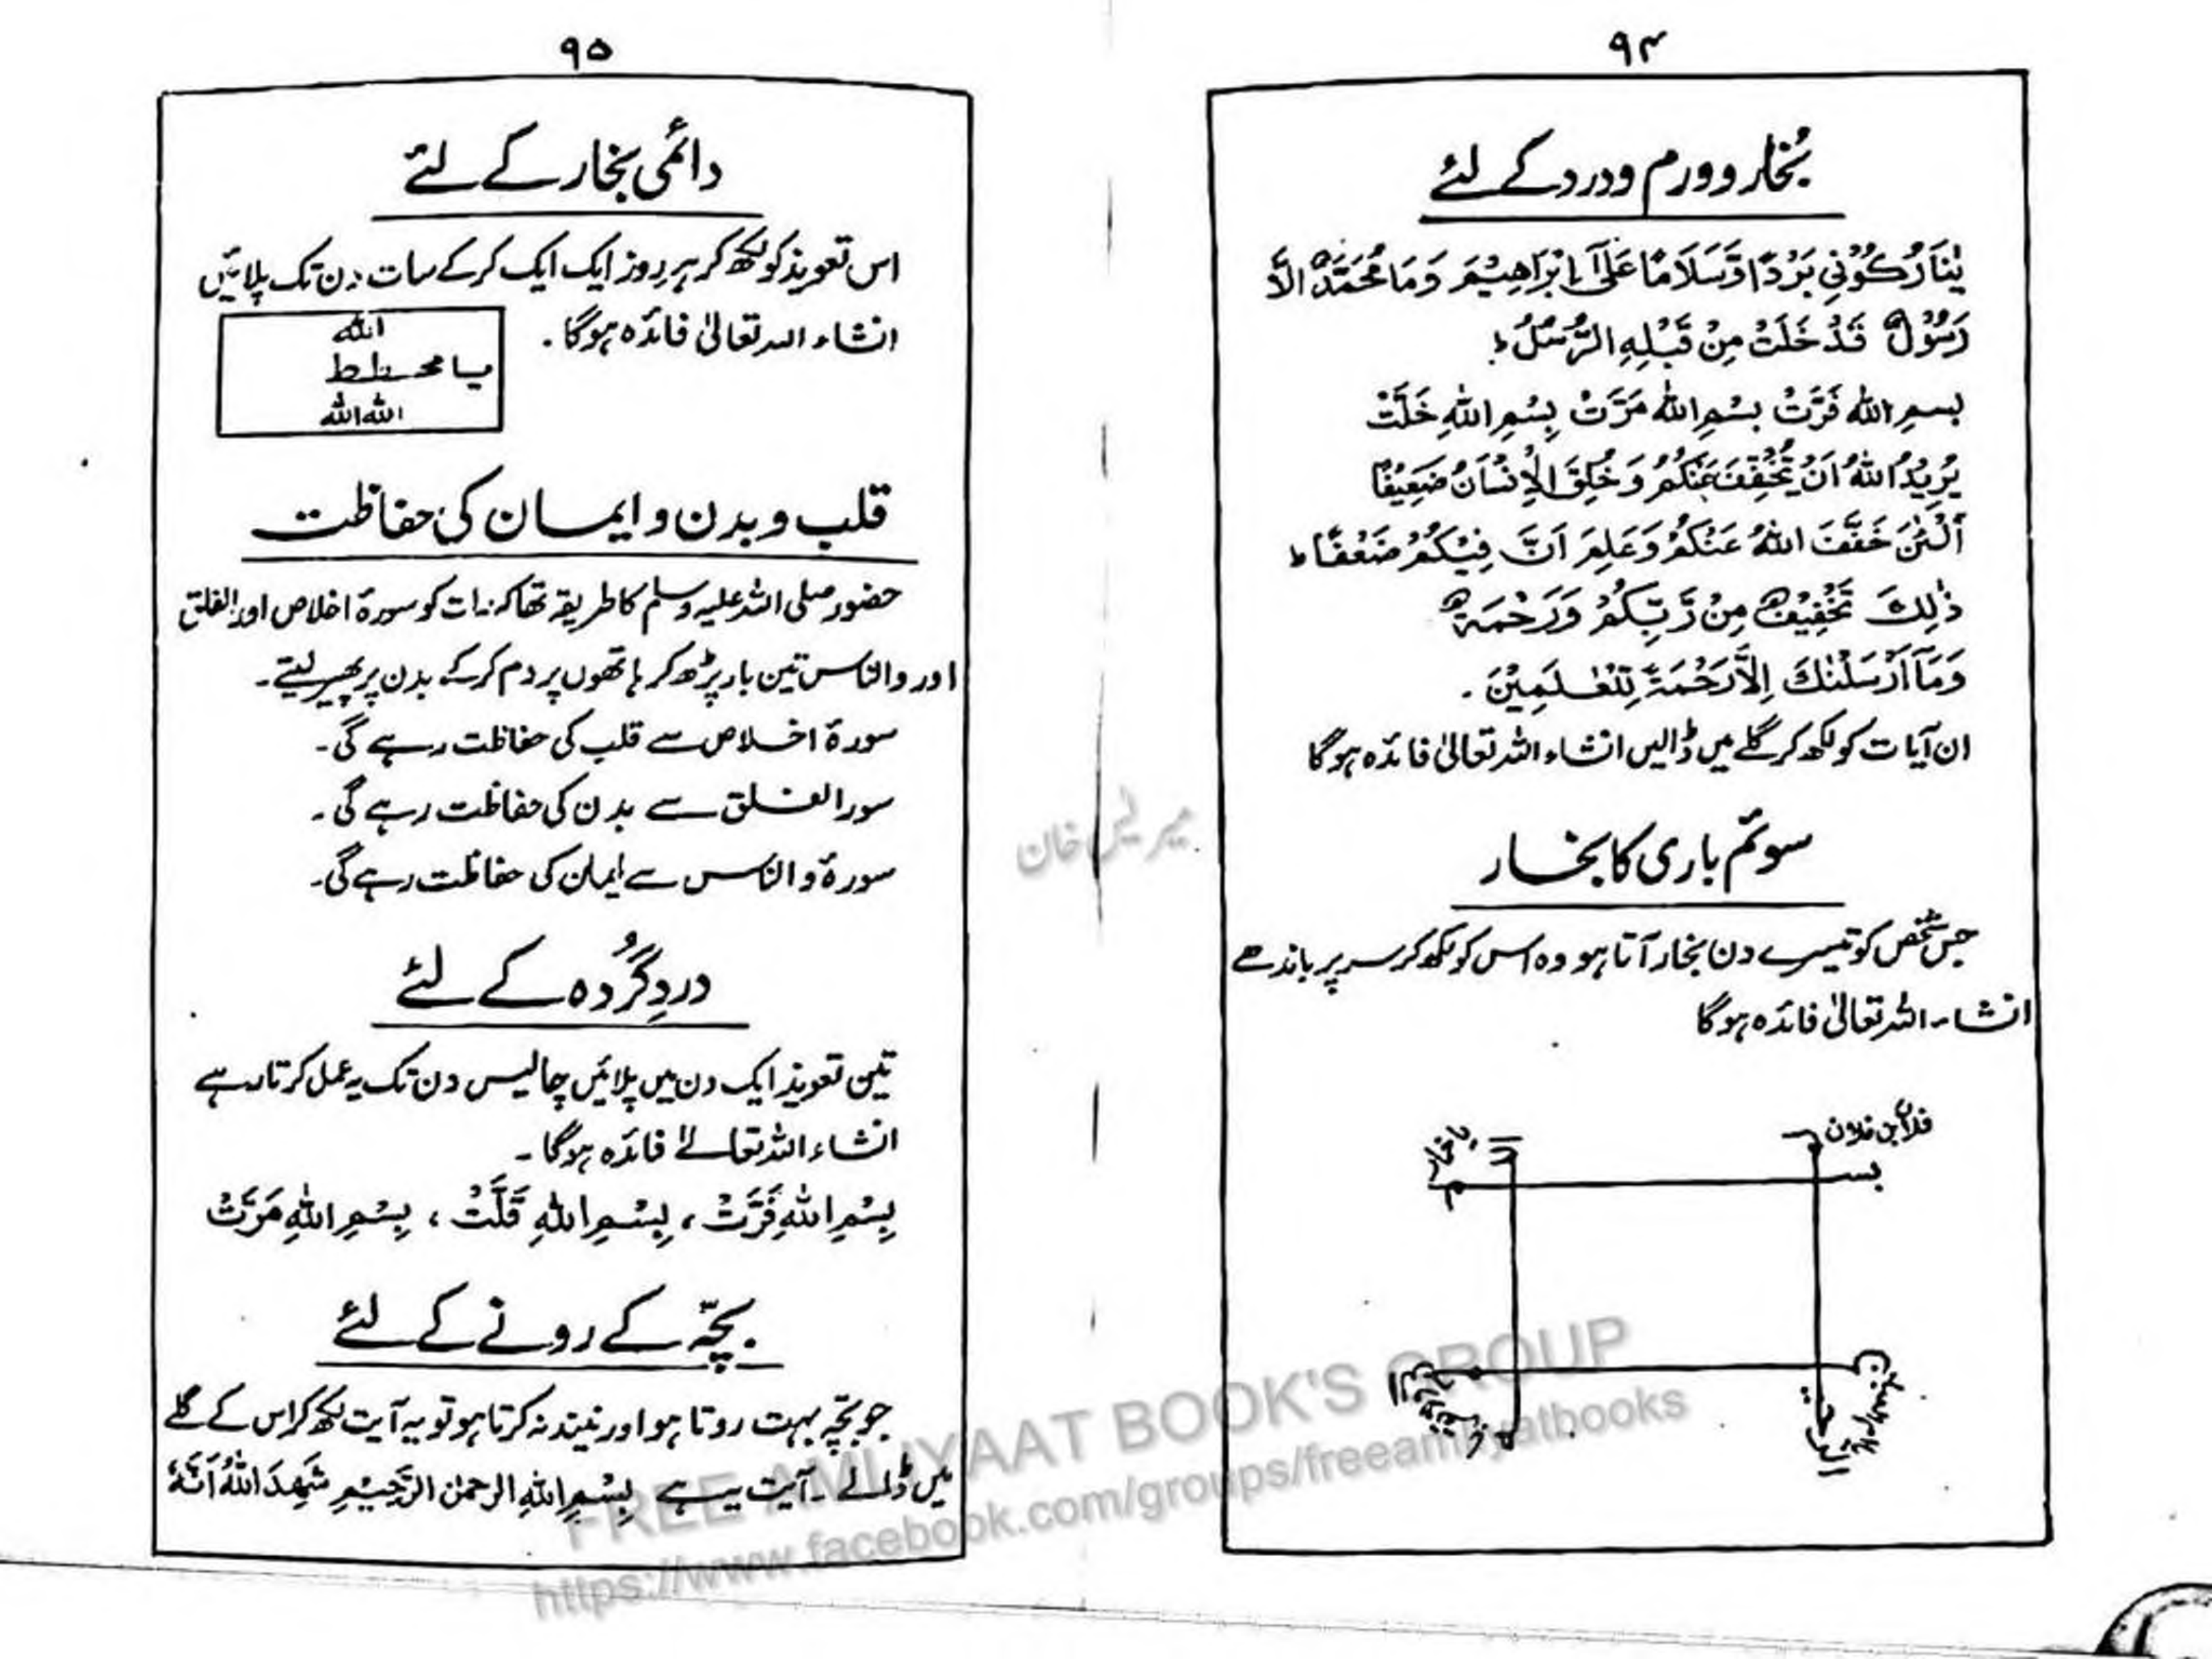 ۹۴
بُخار و ورم و درد کے لئے
یٰنَارُ کُوْنِیْ بَرْدًا وَّسَلَامًا عَلٰٓی اِبْرَاهِیْمَ وَمَا مُحَمَّدٌ اِلَّا
رَسُوْلٌ قَدْ خَلَتْ مِنْ قَبْلِهِ الرُّسُلُ ط
بسمِ اللہ فَرَّتْ بِسْمِ اللہ مَرَّتْ بِسْمِ اللہِ خَلَّتْ
یُرِیْدُ اللہُ اَنْ یُّخَفِّفَ عَنْکُمْ وَخُلِقَ الْاِنْسَانُ ضَعِیْفًا
اَلْئٰنَ خَفَّفَ اللہُ عَنْکُمْ وَعَلِمَ اَنَّ فِیْکُمْ ضَعْفًا ط
ذٰلِكَ تَخْفِیْفٌ مِنْ رَّبِّکُمْ وَرَحْمَةٌ
وَمَآ اَرْسَلْنٰكَ اِلَّا رَحْمَةً لِّلْعٰلَمِیْنَ ۔
ان آیات کو لکھ کر گلے میں ڈالیں انشاء اللہ تعالیٰ فائدہ ہوگا
سوئم باری کا بخار
جس شخص کو تیسرے دن بخار آتا ہو وہ اس کو لکھ کر سر پر باندھے
انشاء اللہ تعالیٰ فائدہ ہوگا
فلاں بن فلان
بسم
۹۵
دائمی بخار کے لئے
اس تعویذ کو لکھ کر ہر روز ایک ایک کرکے سات دن تک پلائیں
انشاء اللہ تعالیٰ فائدہ ہوگا ۔
اللہ
اللہ اللہ
قلب و بدن و ایمان کی حفاظت
حضور صلی اللہ علیہ وسلم کا طریقہ تھا کہ رات کو سورۂ اخلاص اور الفلق
اور والناس تین بار پڑھ کر ہاتھوں پر دم کرکے بدن پر پھیر لیتے ۔
سورۂ اخلاص سے قلب کی حفاظت رہے گی ۔
سورا لفلق سے بدن کی حفاظت رہے گی ۔
سورۂ والناس سے ایمان کی حفاظت رہے گی۔
دردِ گُردہ کے لئے
تین تعویذ ایک دن میں پلائیں چالیس دن تک یہ عمل کرتا رہے
انشاء اللہ تعالےٰ فائدہ ہوگا ۔
بِسْمِ اللہِ فَرَّتْ ، بِسْمِ اللہِ قَلَّتْ ، بِسْمِ اللہِ مَرَّتْ
بچّہ کے رونے کے لئے
جو بچّہ بہت روتا ہو اور نیند نہ کرتا ہو تو یہ آیت لکھ کر اس کے گلے
میں ڈالے ۔ آیت یہ ہے بِسْمِ اللہِ الرحمٰن الرَّحِیْمِ شَهِدَ اللہُ اَنَّهٗ
FREE AMLIYAAT BOOK'S GROUP
https://www.facebook.com/groups/freeamliyatbooks